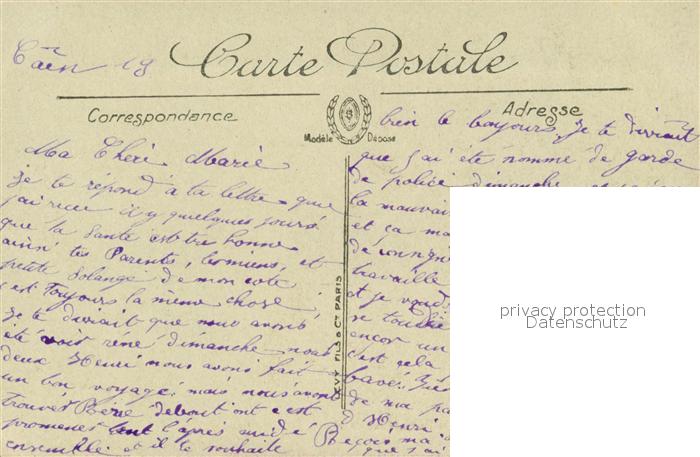 Caen 18
Carte Postale
Correspondance
Adresse
Modèle Déposé
LEVY FILS & Cie PARIS
Ma Cheri Marie
Je te répond a ta lettre que
j'ai recu il y quelques jours
que ta Santé est tre bonne
ainsi tes Parents, les miens, et
petite Solange de mon cote
c'est Toujours la même chose,
je te dirait que nous avons
été voir rené dimanche nous
deux Henri nous avons fait
un bon voyage, mais nous avons
trouvés debout ont c est
promener l'après midi
ensemble et il te souhaite
bien le bonjours, Je te dirait
que j'ai été nomme de garde
de police dimanche et
la mauvais
et ça ma
de consigne
travaille
et je
se
encor un
c'est cela
de ma
Henri
Reçois ma
que j'ai
privacy protection
Datenschutz